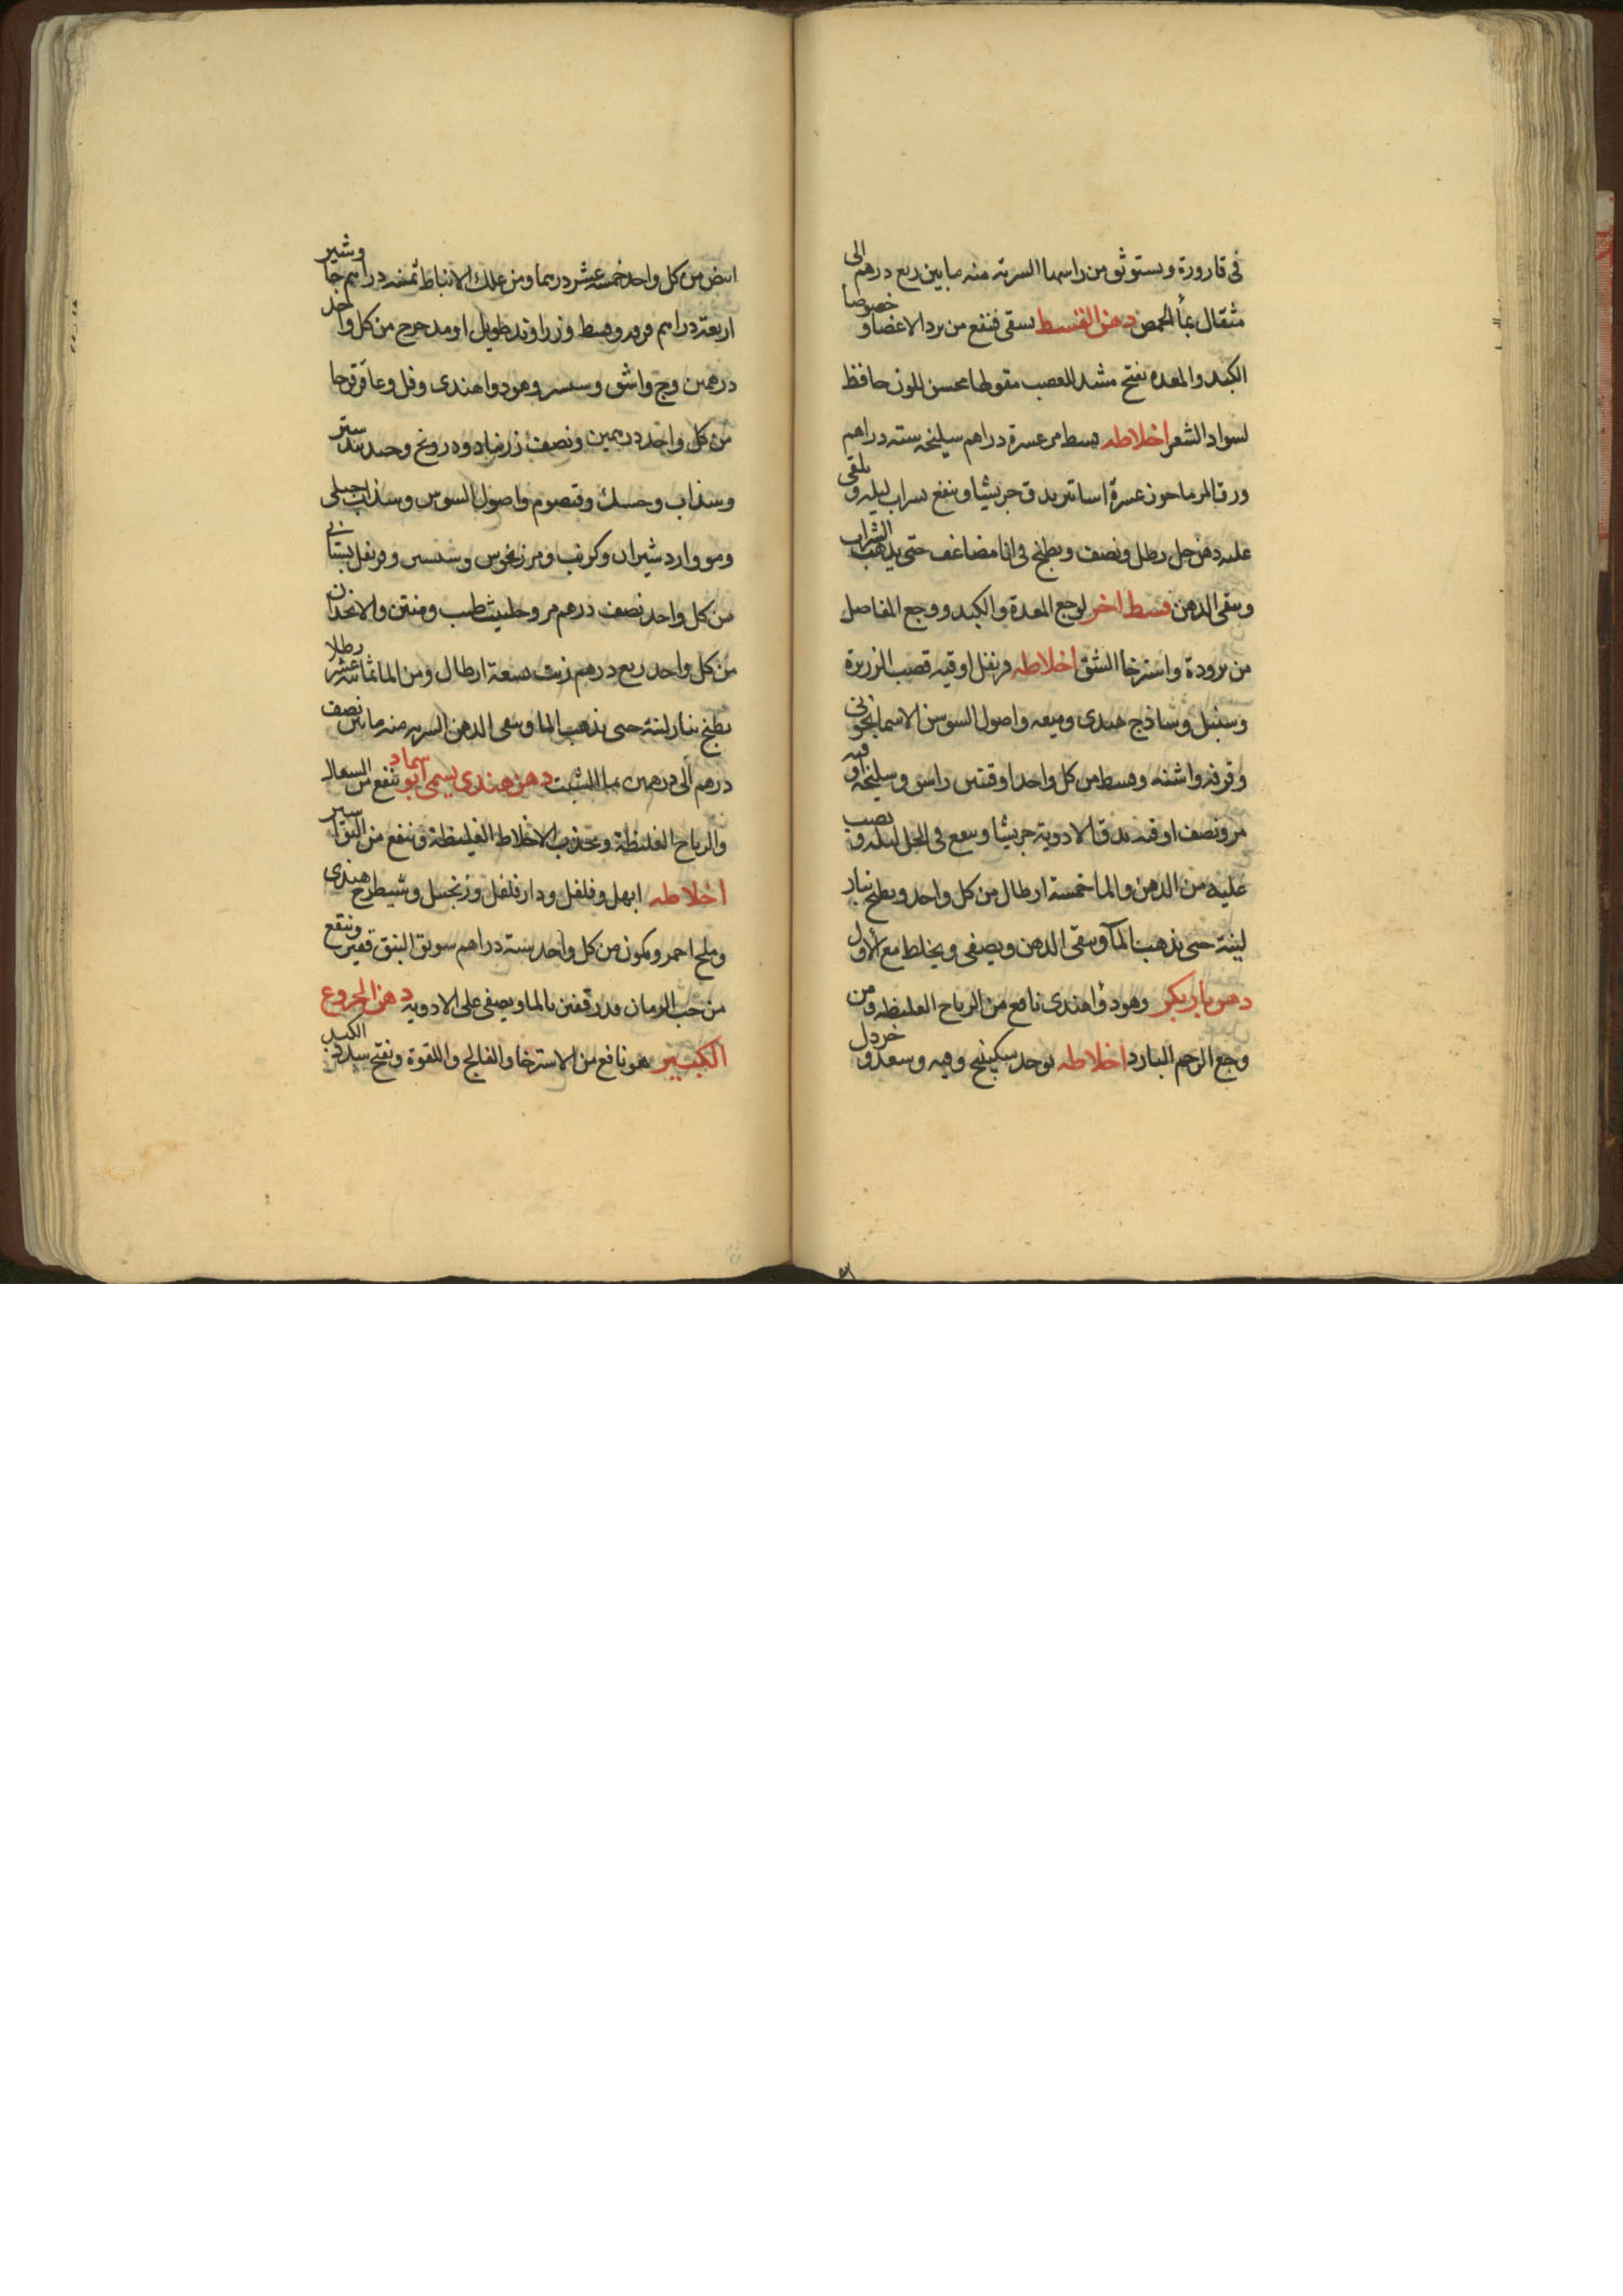 في قارورة ويستوثق من راسها الشربه منه ما بين ربع درهم الى
مثقال بمأ الحمص دهن القسط يسقى فينفع من برد الاعضا و خصوصا
الكبد والمعده يفتح مشد للعصب مقو لها محسن للون حافظ
لسواد الشعر اخلاطه قسط مر عشرة دراهم سليخه سته دراهم
ورق المرماحوز عشرة اساتير يدق جريشا وينقع بشراب ليله و يلقى
عليه دهن حل رطل ونصف ويطبخ في انا مضاعف حتى يذهب الشراب
ويبقى الدهن قسط اخر لوجع المعدة والكبد ووجع المفاصل
من برودة واسترخا الشق اخلاطه قرنفل اوقيه قصب الزريرة
وسنبل وساذج هندى وميعه واصول السوسن الاسمانجونى
وقرفه واشنه وقسط من كل واحد اوقيتين راسن وسليخه اوقيه
مر ونصف اوقيه يدق الادوية جريشا وينقع في الخل ليله و يصب
عليه من الدهن والما خمسة ارطال من كل واحد ويطبخ بنار
لينة حتى يذهب المآ ويبقى الدهن ويصفى ويخلط مع الاول
وهو دوأ هندى نافع من الرياح الغليظه ومن
وجع الرحم البارد اخلاطه يوخذ سكبينج وسعد و خردل
ابيض من كل واحد خمسة عشر درهما ومن علك الانباط ثمنيه دراهم جاوشير
اربعة دراهم وقسط وزراوند طويل او مدحرج من كل واحد
درهمين وج واشق وهو دوا هندى وفل وعاقرقرحا
من كل واحد درهمين ونصف زرنباد ودرونج وجندبيدستر
وسذاب وحسك وقيصوم واصول السوس وسذاب جبلى
ومو وارد شيران وكرنب ومرزنجوش وقرنفل بستانى
من كل واحد نصف درهم مر وحلتيث طيب ومنتن والانجذان
من كل واحد ربع درهم زيت تسعة ارطال ومن الما ثمانيه عشر رطلا
يطبخ بنار لينة حتى يذهب الما ويبقى الدهن الشربه منه ما بين نصف
درهم الى درهمين بما الشبت دهن هندى يسمى ابو سماد ينفع من السعال
والرياح الغليظة ويجذب الاخلاط الغليظة وينفع من البواسير
اخلاطه ابهل وفلفل ودارفلفل وزنجبيل وشيطرج هندى
وملح احمر وكمون من كل واحد ستة دراهم سويق النبق قفيز وينقع
من حب الرمان قدر قفيز بالما ويصفى على الادويه دهن الخروع
الكبير هو نافع من الاسترخا والفالج واللقوة ويفتح سدد الكبد